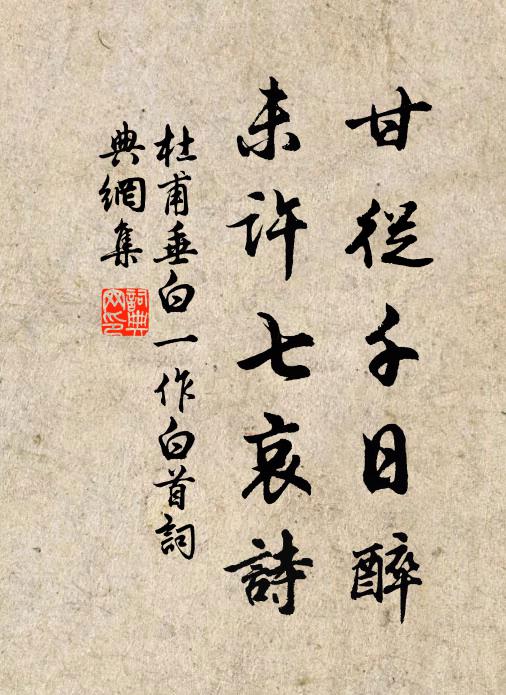 甘從千日醉
未許七哀詩
杜甫垂白一作白首詞
典網集
詞典
网印